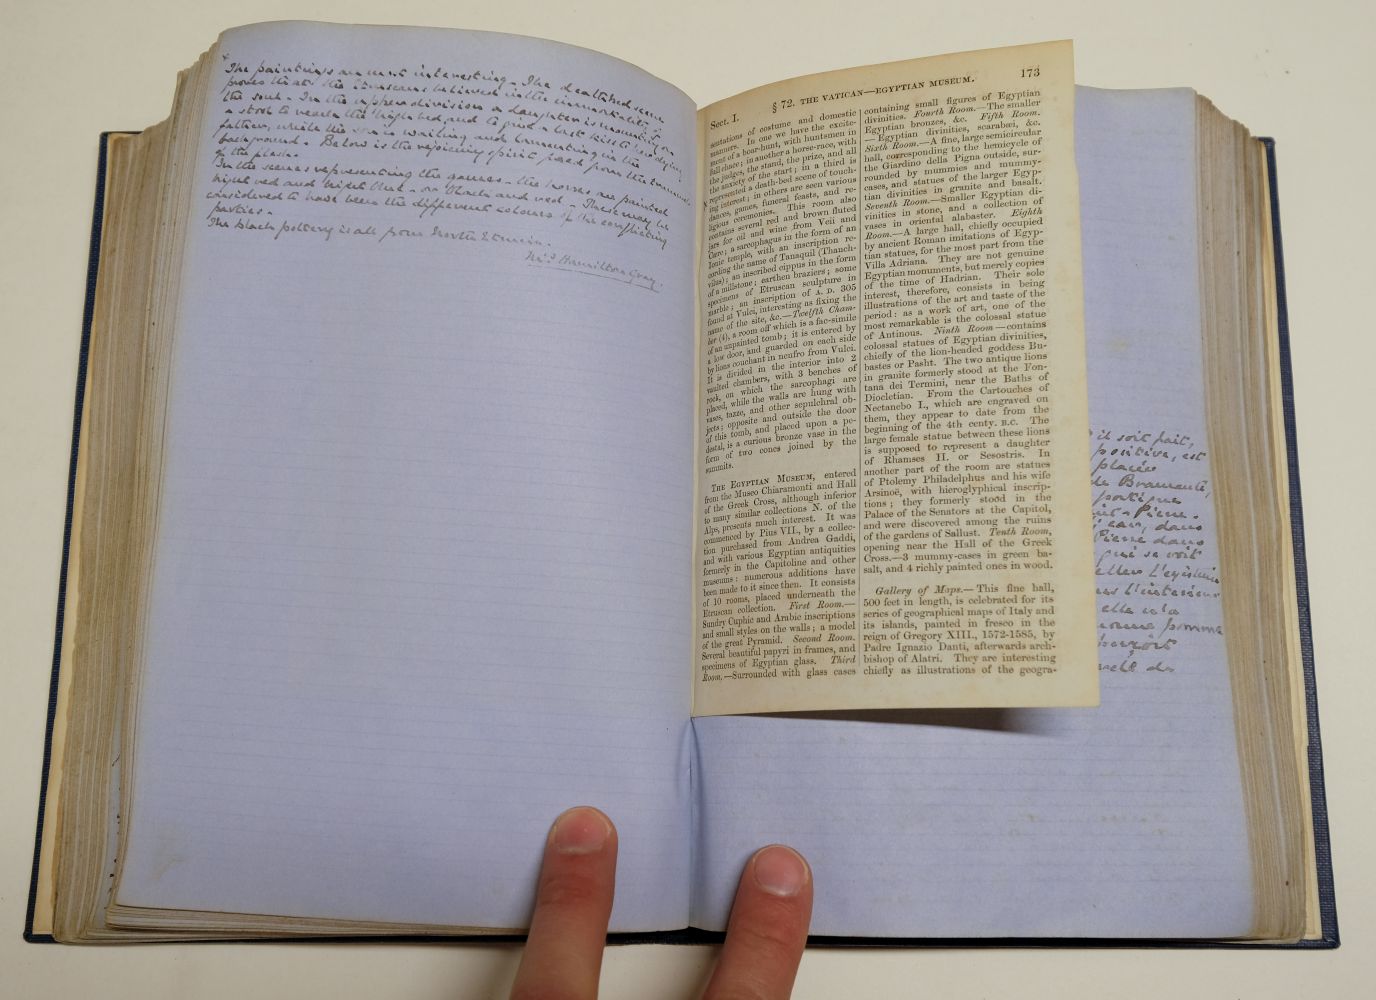 The paintings are most interesting - The deathbed scene
proves that the Etruscans believed in the immortality of
the soul - In the upper division a daughter is mounting on
a stool to reach the high bed, and to give a last kiss to her dying
father, while the son is wailing and lamenting in the
background - Below is the rejoicing spirit freed from the trammels
of the flesh -
In the scenes representing the games - the horses are painted
bright red and bright blue - or black and red - These may be
considered to have been the different colours of the conflicting
parties -
The black pottery is all from North Etruria.
Mrs Hamilton Gray.
Sect. I.
§ 72. THE VATICAN—EGYPTIAN MUSEUM.
173
sentations of costume and domestic
manners. In one we have the excite-
ment of a boar-hunt, with huntsmen in
full chace; in another a horse-race, with
the judges, the stand, the prize, and all
the anxiety of the start; in a third is
represented a death-bed scene of touch-
ing interest; in others are seen various
dances, games, funeral feasts, and re-
ligious ceremonies. This room also
contains several red and brown fluted
jars for oil and wine from Veii and
Cære; a sarcophagus in the form of an
Ionic temple, with an inscription re-
cording the name of Tanaquil (Thanch-
vilus); an inscribed cippus in the form
of a millstone; earthen braziers; some
specimens of Etruscan sculpture in
marble; an inscription of A. D. 305
found at Vulci, interesting as fixing the
name of the site, &c.—Twelfth Cham-
ber (4), a room off which is a fac-simile
of an unpainted tomb; it is entered by
a low door, and guarded on each side
by lions couchant in nenfro from Vulci.
It is divided in the interior into 2
vaulted chambers, with 3 benches of
rock, on which the sarcophagi are
placed, while the walls are hung with
vases, tazze, and other sepulchral ob-
jects; opposite and outside the door
of this tomb, and placed upon a pe-
destal, is a curious bronze vase in the
form of two cones joined by the
summits.
THE EGYPTIAN MUSEUM, entered
from the Museo Chiaramonti and Hall
of the Greek Cross, although inferior
to many similar collections N. of the
Alps, presents much interest. It was
commenced by Pius VII., by a collec-
tion purchased from Andrea Gaddi,
and with various Egyptian antiquities
formerly in the Capitoline and other
museums: numerous additions have
been made to it since then. It consists
of 10 rooms, placed underneath the
Etruscan collection. First Room.—
Sundry Cuphic and Arabic inscriptions
and small styles on the walls; a model
of the great Pyramid. Second Room.
Several beautiful papyri in frames, and
specimens of Egyptian glass. Third
Room.—Surrounded with glass cases
containing small figures of Egyptian
divinities. Fourth Room.—The smaller
Egyptian bronzes, &c. Fifth Room.
—Egyptian divinities, scarabæi, &c.
Sixth Room.—A fine, large semicircular
hall, corresponding to the hemicycle of
the Giardino della Pigna outside, sur-
rounded by mummies and mummy-
cases, and statues of the larger Egyp-
tian divinities in granite and basalt.
Seventh Room.—Smaller Egyptian di-
vinities in stone, and a collection of
vases in oriental alabaster. Eighth
Room.—A large hall, chiefly occupied
by ancient Roman imitations of Egyp-
tian statues, for the most part from the
Villa Adriana. They are not genuine
Egyptian monuments, but merely copies
of the time of Hadrian. Their sole
interest, therefore, consists in being
illustrations of the art and taste of the
period: as a work of art, one of the
most remarkable is the colossal statue
of Antinous. Ninth Room—contains
colossal statues of Egyptian divinities,
chiefly of the lion-headed goddess Bu-
bastes or Pasht. The two antique lions
in granite formerly stood at the Fon-
tana dei Termini, near the Baths of
Diocletian. From the Cartouches of
Nectanebo I., which are engraved on
them, they appear to date from the
beginning of the 4th centy. B.C. The
large female statue between these lions
is supposed to represent a daughter
of Rhamses II. or Sesostris. In
another part of the room are statues
of Ptolemy Philadelphus and his wife
Arsinoë, with hieroglyphical inscrip-
tions; they formerly stood in the
Palace of the Senators at the Capitol,
and were discovered among the ruins
of the gardens of Sallust. Tenth Room,
opening near the Hall of the Greek
Cross.—3 mummy-cases in green ba-
salt, and 4 richly painted ones in wood.
Gallery of Maps.—This fine hall,
500 feet in length, is celebrated for its
series of geographical maps of Italy and
its islands, painted in fresco in the
reign of Gregory XIII., 1572-1585, by
Padre Ignazio Danti, afterwards arch-
bishop of Alatri. They are interesting
chiefly as illustrations of the geogra-
il soit fait,
positive, est
placée
de Bramante,
portique
Pierre.
eau, dans
Pierre dans
qui se voit
l'intérieur
elle n'a
pomme
de